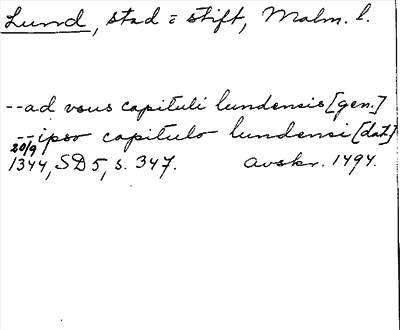 Lund, stad o stift, Malm. l.
--ad vsus capituli lundensis [gen.]
--ipso capitulo lundensi [dat.]
20/9
1344, SD 5, s. 347. Avskr. 1494.